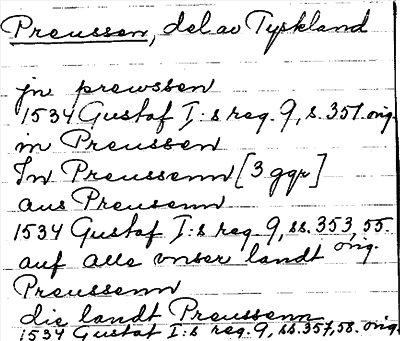 Preussen, del av Tyskland
jn prewssen
1534 Gustaf I:s reg. 9, s. 351. orig.
in Preussen
In Preussenn [3 ggr]
aus Preusenn
1534 Gustaf I:s reg. 9, ss. 353, 55. orig.
auf alle vnser landt
Preussenn
die landt Preussenn
1534 Gustaf I:s reg. 9, ss. 357, 58. orig.